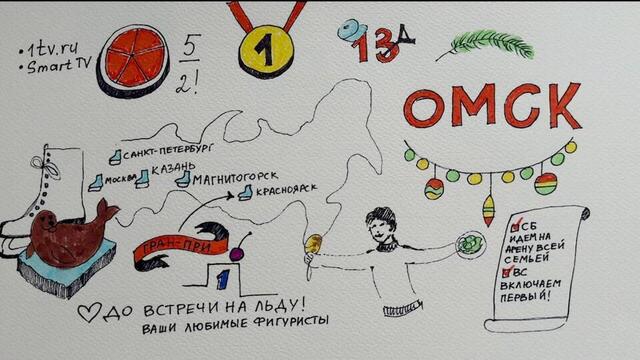 • 1tv.ru
• Smart TV
5
2!
1
13 Д
ОМСК
САНКТ-ПЕТЕРБУРГ
МОСКВА
КАЗАНЬ
МАГНИТОГОРСК
КРАСНОЯРСК
ГРАН-ПРИ
1
СБ
ИДЕМ НА
АРЕНУ ВСЕЙ
СЕМЬЕЙ
ВС
ВКЛЮЧАЕМ
ПЕРВЫЙ!
ДО ВСТРЕЧИ НА ЛЬДУ!
ВАШИ ЛЮБИМЫЕ ФИГУРИСТЫ